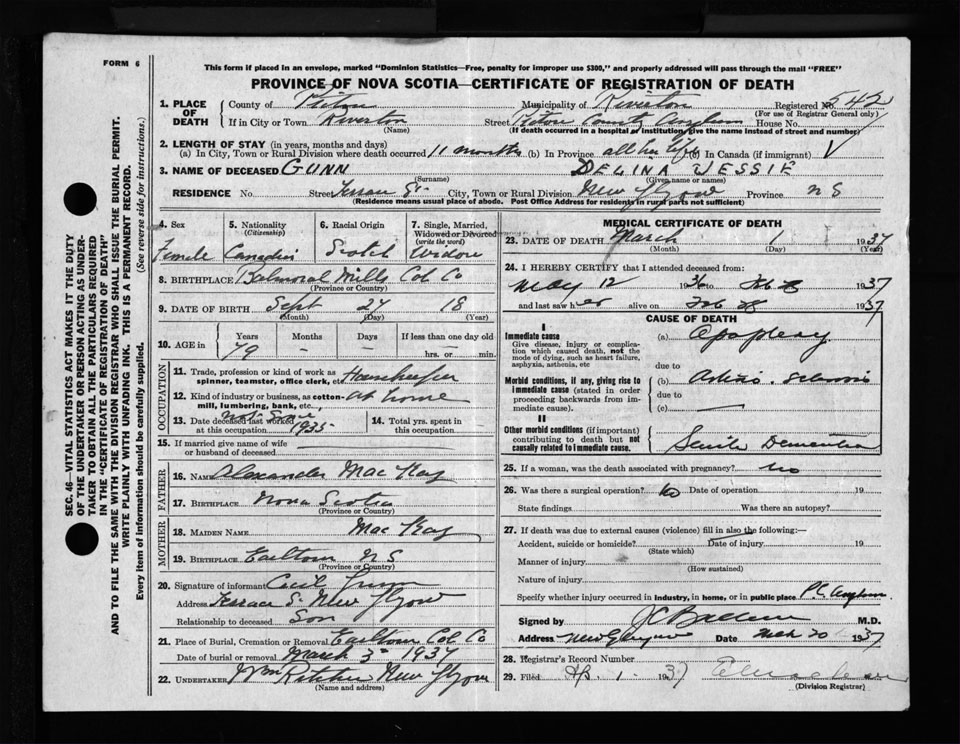 FORM 6
This form if placed in an envelope, marked "Dominion Statistics—Free, penalty for improper use $300," and properly addressed will pass through the mail "FREE"
PROVINCE OF NOVA SCOTIA—CERTIFICATE OF REGISTRATION OF DEATH
SEC. 46—VITAL STATISTICS ACT MAKES IT THE DUTY
OF THE UNDERTAKER OR PERSON ACTING AS UNDER-
TAKER TO OBTAIN ALL THE PARTICULARS REQUIRED
IN THE "CERTIFICATE OF REGISTRATION OF DEATH"
AND TO FILE THE SAME WITH THE DIVISION REGISTRAR WHO SHALL ISSUE THE BURIAL PERMIT.
WRITE PLAINLY WITH UNFADING INK. THIS IS A PERMANENT RECORD.
Every item of information should be carefully supplied. (See reverse side for instructions.)
1. PLACE OF DEATH
County of Pictou Municipality of Riverton Registered No. 542
(For use of Registrar General only)
If in City or Town Riverton Street Pictou County Asylum House No.
(Name) (If death occurred in a hospital or institution, give the name instead of street and number)
2. LENGTH OF STAY (in years, months and days)
(a) In City, Town or Rural Division where death occurred 11 months (b) In Province all her life (c) In Canada (if immigrant)
3. NAME OF DECEASED GUNN DELINA JESSIE
(Surname) (Given name or names)
RESIDENCE No. Street Terrace St. City, Town or Rural Division New Glasgow Province N S
(Residence means usual place of abode. Post Office Address for residents in rural parts not sufficient)
4. Sex 5. Nationality (Citizenship) 6. Racial Origin 7. Single, Married, Widowed or Divorced (write the word)
Female Canadian Scotch Widow
8. BIRTHPLACE Balmoral Mills Col Co
(Province or Country)
9. DATE OF BIRTH Sept 27 18
(Month) (Day) (Year)
10. AGE in Years Months Days If less than one day old
79 — — hrs. or min.
OCCUPATION
11. Trade, profession or kind of work as spinner, teamster, office clerk, etc. Housekeeper
12. Kind of industry or business, as cotton-mill, lumbering, bank, etc. at home
13. Date deceased last worked at this occupation not since 1935
14. Total yrs. spent in this occupation
15. If married give name of wife or husband of deceased
FATHER
16. NAME Alexander Mac Kay
17. BIRTHPLACE Nova Scotia
(Province or Country)
MOTHER
18. MAIDEN NAME Mac Kay
19. BIRTHPLACE Earltown N S
(Province or Country)
20. Signature of informant Cecil Gunn
Address Terrace S. New Glasgow
Relationship to deceased Son
21. Place of Burial, Cremation or Removal Earltown Col Co
Date of burial or removal March 3 1937
22. UNDERTAKER New Glasgow
(Name and address)
MEDICAL CERTIFICATE OF DEATH
23. DATE OF DEATH March 1 1937
(Month) (Day) (Year)
24. I HEREBY CERTIFY that I attended deceased from:
May 12 1936 to Feb 28 1937
and last saw her alive on Feb 28 1937
CAUSE OF DEATH
I
Immediate cause (a) Apoplexy
Give disease, injury or complication which caused death, not the mode of dying, such as heart failure, asphyxia, asthenia, etc
due to
Morbid conditions, if any, giving rise to immediate cause (stated in order proceeding backwards from immediate cause). (b) Arterio. Sclerosis
due to
(c) —
II
Other morbid conditions (if important) contributing to death but not causally related to immediate cause. Senile Dementia
25. If a woman, was the death associated with pregnancy? no
26. Was there a surgical operation? no Date of operation 19
State findings Was there an autopsy?
27. If death was due to external causes (violence) fill in also the following:—
Accident, suicide or homicide? Date of injury 19
(State which)
Manner of injury
(How sustained)
Nature of injury
Specify whether injury occurred in industry, in home, or in public place P.C. Asylum
Signed by M.D.
Address New Glasgow Date Mch 20 1937
28. Registrar's Record Number
29. Filed Ap. 1 1937
(Division Registrar)